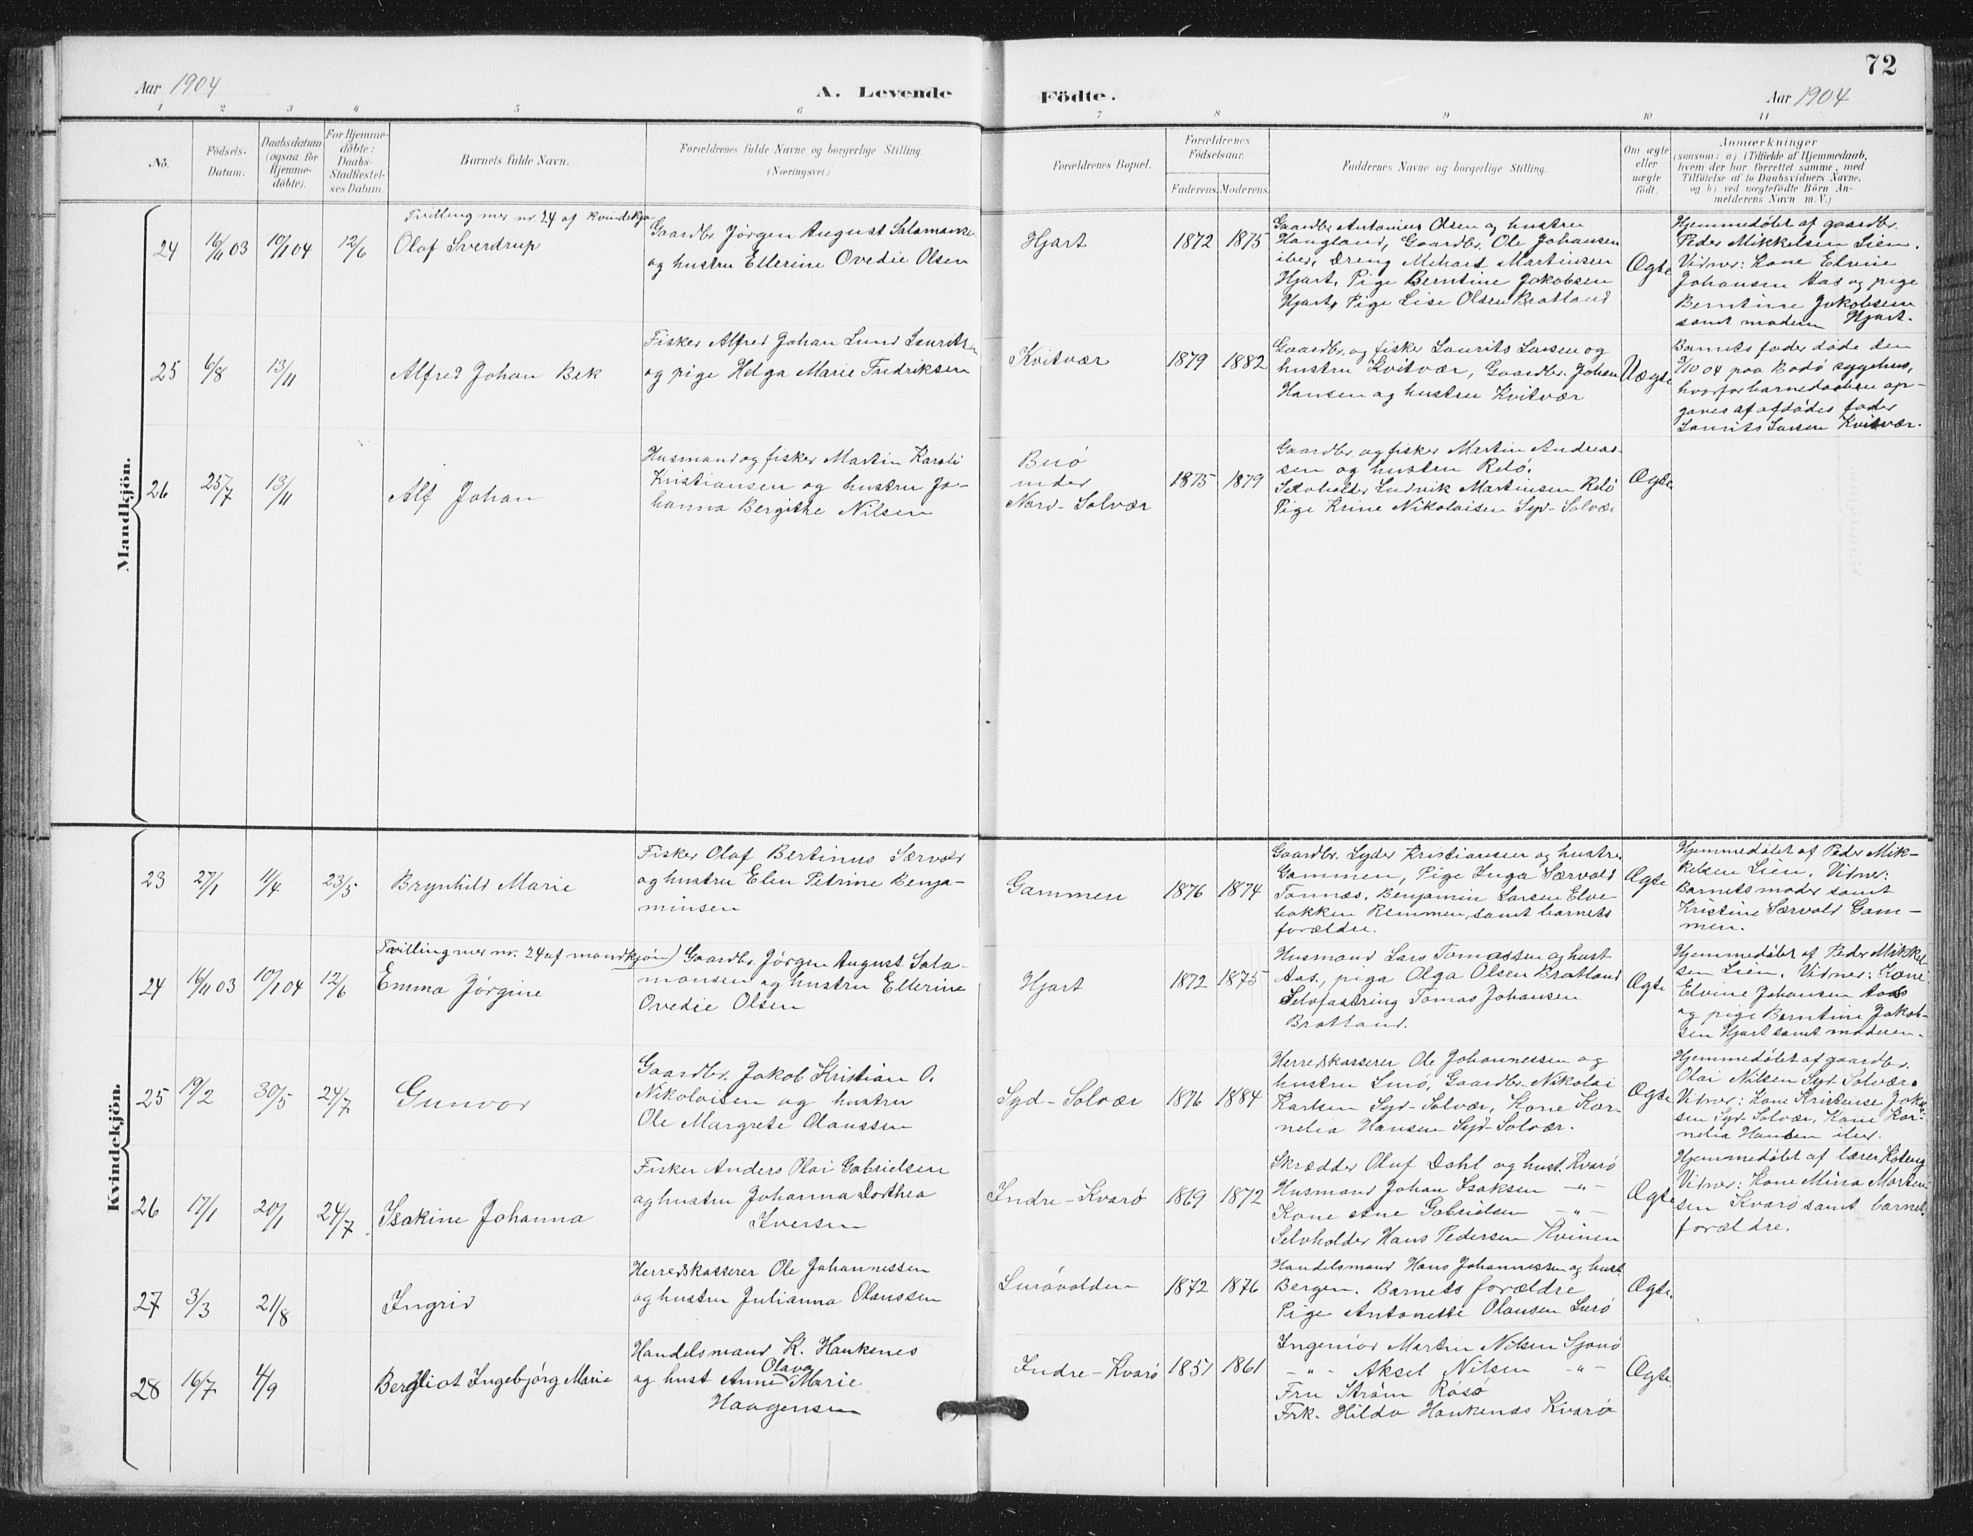 72
Aar 1904
A. Levende
Födte.
Aar 1904
1 2 3 4 5 6 7 8 9 10 11
No.
Födsels-Datum.
Daabsdatum (ogsaa for Hjemme-døbte).
For Hjemme-døbte: Daabs-Stadfæstelses Datum.
Barnets fulde Navn.
Forældrenes fulde Navne og borgerlige Stilling.
(Næringsvei.)
Forældrenes Bopæl.
Forældrenes Födselsaar.
Faderens. Moderens.
Faddernes Navne og borgerlige Stilling.
Om ægte eller uægte født.
Anmærkninger
(saasom: a) i Tilfælde af Hjemmedaab,
hvem der har forrettet samme, med
Tilføielse af to Daabsvidners Navne,
og b) ved uægtefödte Börn An-
melderens Navn m. V.)
Mandkjön.
24
16/11 03
10/1 04
12/6
Tvilling mer nr 24 af kvindekjø
Olaf Sverdrup
Gaardbr Jørgen August Salamonsen
og hustru Ellerine Ovedie Olsen
Hjart
1872
1875
Gaardbr Antonius Olsen og hustru
Haugland, Gaardbr. Ole Johansen
ibid, Dreng Mikael Martinsen
Hjart, Pige Berntine Jakobsen
Hjart, Pige Lise Olsen Bratland
Ægte
Hjemmedøbt af gaardbr.
Peder Mikkelsen Lien.
Vidner: Kone Elvine
Johansen Aas og pige
Berntine Jakobsen
samt modern Hjart.
25
6/8
13/11
Alfred Johan Bek
Fisker Alfred Johan Lund Lauritsen
og pige Helga Marie Fredriksen
Kvitvær
1879
1882
Gaardbr. og fisker Laurits Larsen og
hustru Kvitvær, Gaardbr. Johan
Hansen og hustru Kvitvær
Uægte
Barnets fader døde den
/10 04 paa Bodø sygehus,
hvorfor barnedaaben op-
gaves af afdødes fader
Laurits Larsen Kvitvær.
26
25/7
13/11
Alf Johan
Husmand og fisker Martin Karoli
Kristiansen og hustru Jo-
hanna Bergithe Nilsen
Buø
under
Nord-Solvær
1875
1879
Gaardbr. og fisker Martin Andreas-
sen og hustru Relø,
Selvholder Ludvik Martinsen Relø
Pige Krine Nikolaisen Syd-Solvær
Ægte
Kvindekjön.
23
27/1
4/4
23/5
Brynhild Marie
Fisker Olaf Bertinus Særvold
og hustru Elen Petrine Benja-
minsen
Gammen
1876
1874
Gaardbr. Lyder Kristiansen og hustru
Gammen, Pige Inga Særvold
Tonnes. Benjamin Larsen Elve-
bakken Remmen, samt barnets
forældre.
Ægte
Hjemmedøbt af Peder Mik-
kelsen Lien. Vidner:
Barnets moder samt
Kristine Særvold Gam-
men.
24
16/11 03
10/1 04
12/6
Tvilling mer nr. 24 af mandkjøn)
Emma Jørgine
Gaardbr Jørgen August Sala-
monsen og hustru Ellerine
Ovedie Olsen
Hjart
1872
1875
Husmand Lars Tomassen og hust
Aas, pige Olga Olsen Bratland
Selvfostring Tomas Johansen
Bratland.
Ægte
Hjemmedøbt af Peder Mikkel-
sen Lien, Vidner: Kone
Elvine Johansen Aas
og pige Berntine Jakob-
sen Hjart samt moderen.
25
19/2
30/5
24/7
Gunvor
Gaardbr. Jakob Kristian O.
Nikolaisen og hustru
Ole Margrete Olaussen
Syd-Solvær
1876
1884
Herredskasserer Ole Johannessen og
hustru Lurø, Gaardbr. Nikolai
Karlsen Syd-Solvær, Kone Kor-
nelia Hansen Syd-Solvær.
Ægte
Hjemmedøbt af gaardbr.
Olai Nilsen Syd Solvær.
Vidner: Kone Kristense Jakob-
sen Syd Solvær, Kone Kor-
nelia Hansen ibid.
26
17/1
20/1
24/7
Isakine Johanna
Fisker Anders Olai Gabrielsen
og hustru Johanna Dorthea
Iversen
Indre-Kvarø
1869
1872
Skrædder Oluf Dahl og hust. Kvarø
Husmand Johan Isaksen -"-
Kone Ane Gabrielsen -"-
Selvholder Hans Pedersen Kvinen
Ægte
Hjemmedøbt af lærer Hoteng
Vidner: Kone Mina Morten-
sen Kvarø samt barnets
forældre.
27
3/3
21/8
Ingrid
Herredskasserer Ole Johannessen
og hustru Julianna Olaussen
Lurøvolden
1872
1876
Handelsmand Hans Johannessen og hust.
Bergen. Barnets forældre
Pige Antonette Olausen Lurø
Ægte.
28
16/7
4/9
Bergliot Ingebjørg Marie
Handelsmand K. Haukenes
og hust Anne Olava Marie
Haagensen
Indre-Kvarø
1851
1861
Ingeniør Martin Nilsen Sjonø
-"- Aksel Nilsen -"-
Fru Strøm Røsø
Frk. Hilda Haukenæs Kvarø
Ægte.